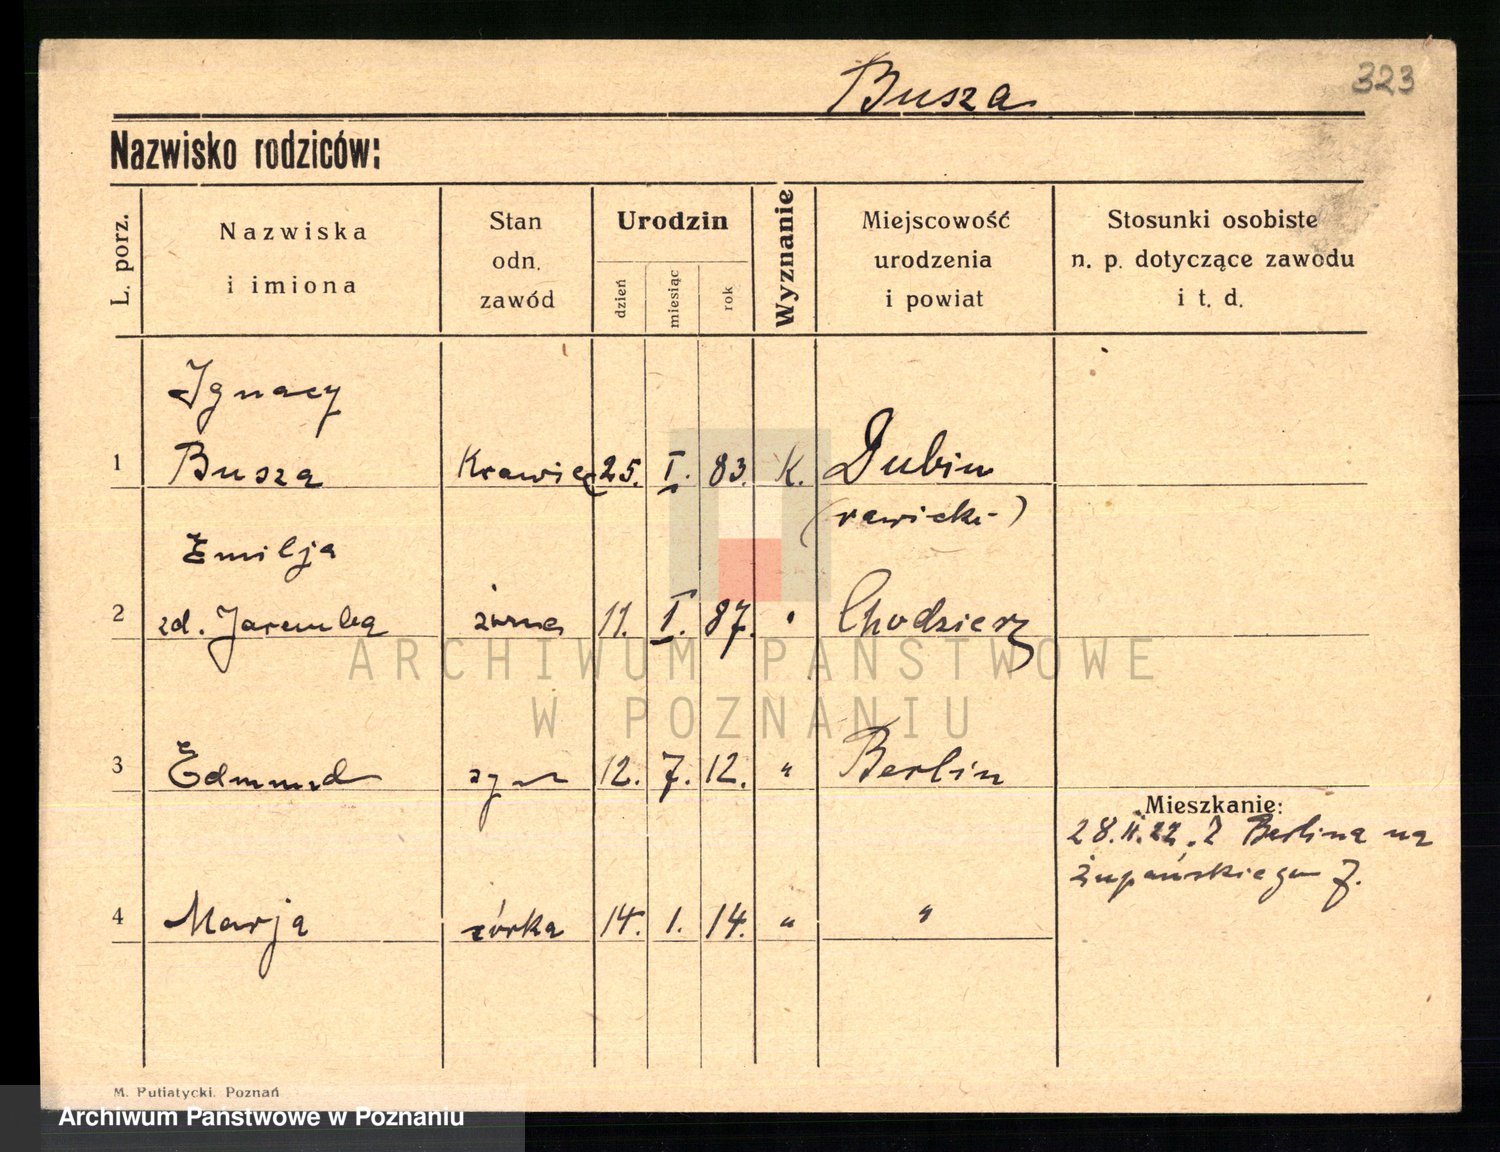 Busza 323
Nazwisko rodziców:
L. porz. Nazwiska i imiona Stan odn. zawód Urodzin dzień miesiąc rok Wyznanie Miejscowość urodzenia i powiat Stosunki osobiste n. p. dotyczące zawodu i t. d.
Ignacy
1 Busza Krawiec 25. I. 83. K. Dubin
(rawicki)
Emilja
2 zd. Jaremba żona 11. I. 87. " Chodzierz
ARCHIWUM PAŃSTWOWE
W POZNANIU
3 Edmund syn 12. 7. 12. " Berlin
Mieszkanie:
28.II.22. Z Berlina na
Żupańskiego 7.
4 Marja córka 14. 1. 14. " "
M. Putiatycki. Poznań
Archiwum Państwowe w Poznaniu